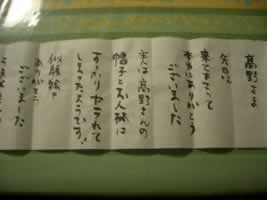 高野さま
先日は
来て下さって
本当にありがとう
ございました
主人は高野さんの
帽子とお人柄に
すっかりヤラれて
しまったようです!
似顔絵
ありがとう
ございました